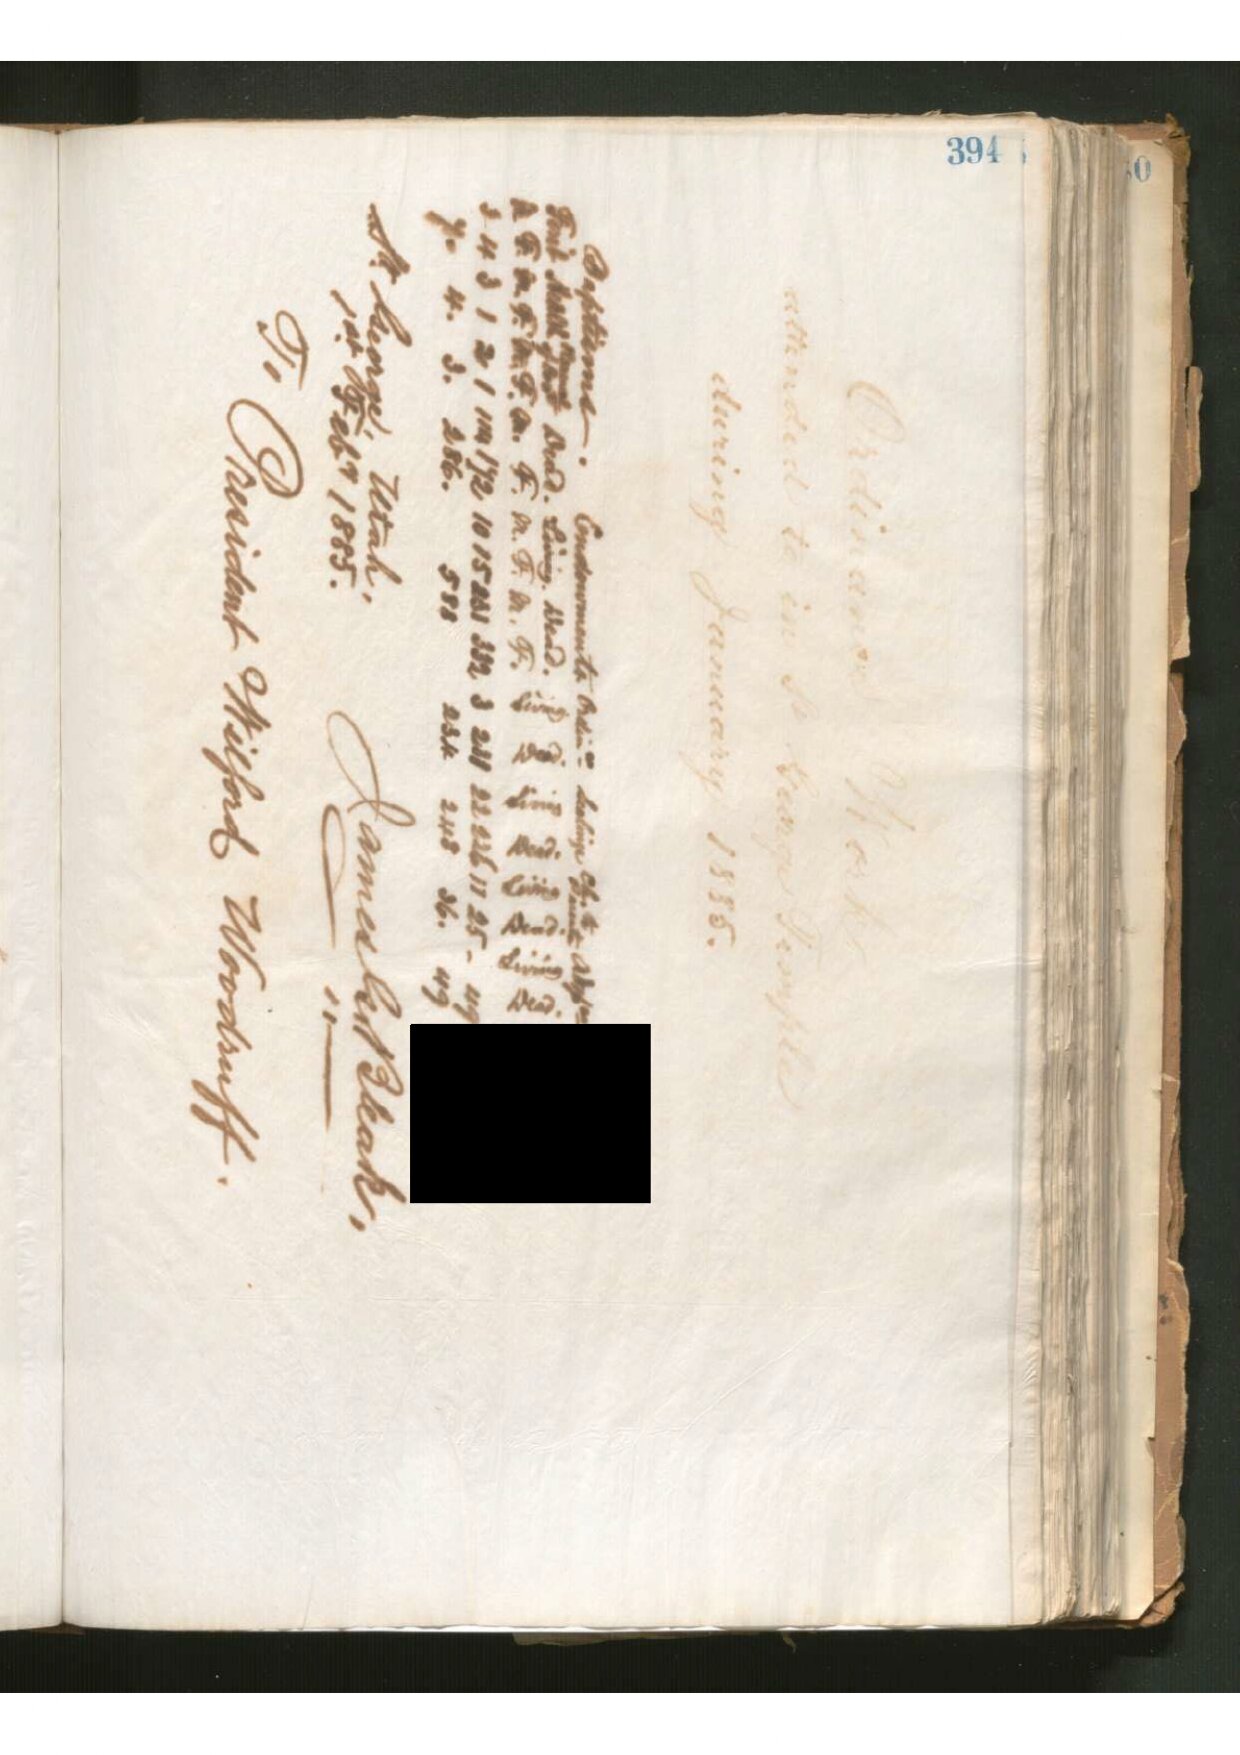 394
Ordinance Work
attended to in St George Temple
during January 1885.
Baptisms. Endowments Ordin=
Dead. Living. Dead.
M. F. M. F. M. F. Living Dead. Living Dead. Living Dead. Living Dead.
3 4 3 1 2 1 114 172 10 15 231 332 3 231 22 226 11 25 - 49
7. 4. 3. 286. 588 234 248 36. 49
St. George, Utah,
1st Feby 1885.
James G. Bleak,
To President Wilford Woodruff.